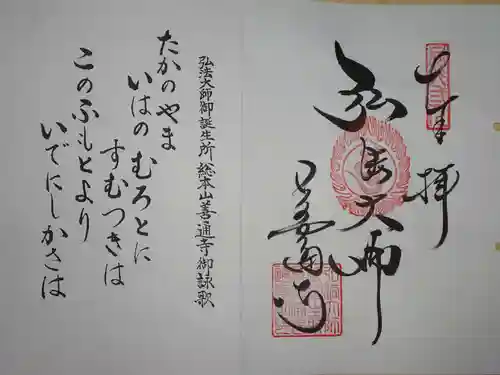 奉拝
弘法大師
善通寺
弘法大師御誕生所 総本山善通寺御詠歌
たかのやま
いはの むろとに
すむつきは
このふもとより
いでにしかさは